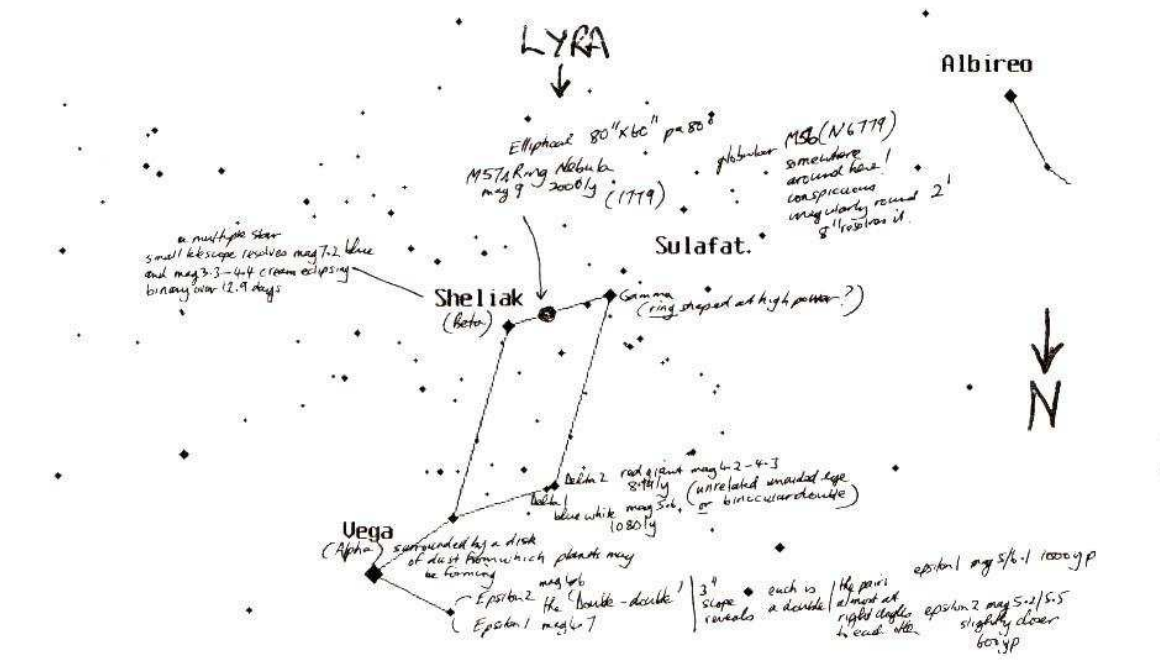 LYRA
Albireo
Elliptical 80"x60" pa 80°
M57 Ring Nebula
mag 9 2000ly
(1779)
globular M56 (N6779)
somewhere
around here!
conspicuous
irregularly round 2'
8" resolves it.
a multiple star
small telescope resolves mag 7.2 blue
and mag 3.3-4.4 cream eclipsing
binary over 12.9 days
Sulafat.
Sheliak
(Beta)
Gamma
(ring shaped at high power?)
N
Delta 2 red giant mag 4.2-4.3
(unrelated unaided eye
or binocular double)
Delta 1
blue white mag 5.6,
1080ly
Vega
(Alpha) surrounded by a disk
of dust from which planets may
be forming
Epsilon 2 mag 4.6
the 'Double-double'
Epsilon 1 mag 4.7
3"
scope
reveals
each is
a double
the pairs
almost at
right angles
to each other
epsilon 1 mag 5/6.1 1000yp
epsilon 2 mag 5.2/5.5
slightly closer
600yp